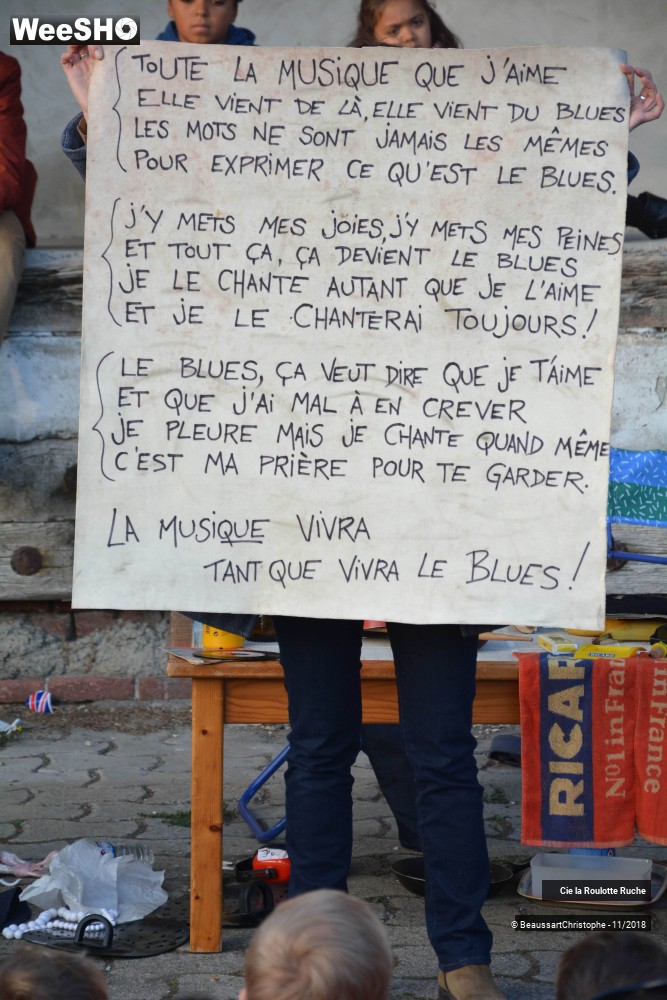 WeeSHO
TOUTE LA MUSIQUE QUE J'AIME
ELLE VIENT DE LÀ, ELLE VIENT DU BLUES
LES MOTS NE SONT JAMAIS LES MÊMES
POUR EXPRIMER CE QU'EST LE BLUES.
J'Y METS MES JOIES, J'Y METS MES PEINES
ET TOUT ÇA, ÇA DEVIENT LE BLUES
JE LE CHANTE AUTANT QUE JE L'AIME
ET JE LE CHANTERAI TOUJOURS!
LE BLUES, ÇA VEUT DIRE QUE JE T'AIME
ET QUE J'AI MAL À EN CREVER
JE PLEURE MAIS JE CHANTE QUAND MÊME
C'EST MA PRIÈRE POUR TE GARDER.
LA MUSIQUE VIVRA
TANT QUE VIVRA LE BLUES!
RICAR
N°1 in Fran
in France
Cie la Roulotte Ruche
© BeaussartChristophe - 11/2018